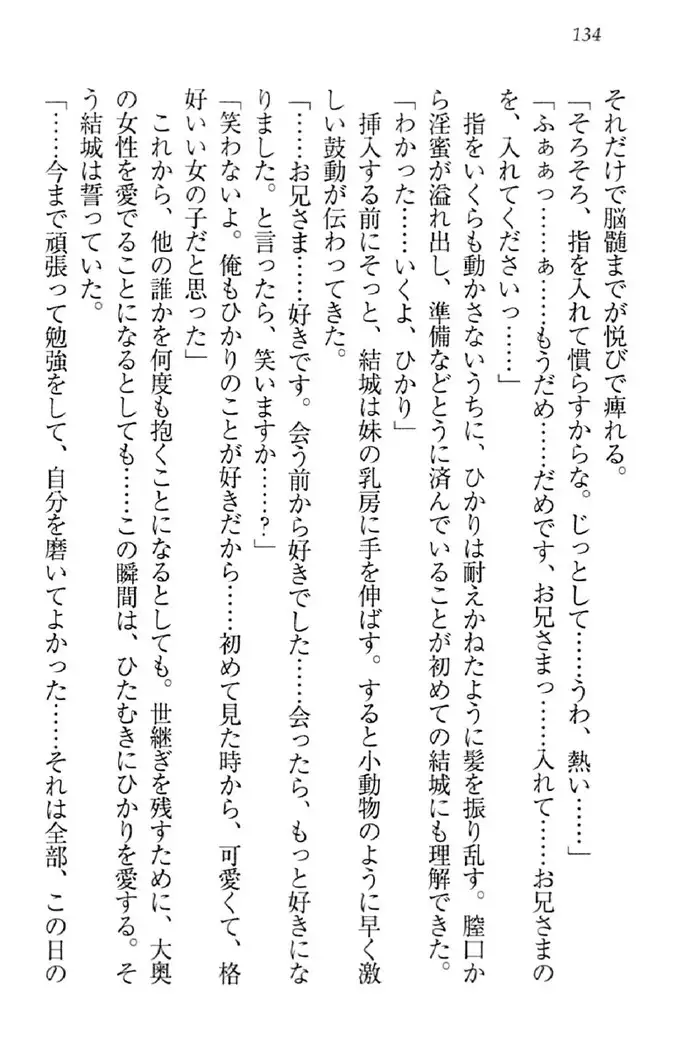 134
それだけで脳髄までが悦びで痺れる。
「そろそろ、指を入れて慣らすからな。じっとして……うわ、熱い……」
「ふぁぁっ……ぁ……もうだめ……だめです、お兄さまっ……入れて……お兄さまの
を、入れてくださいっ……」
指をいくらも動かさないうちに、ひかりは耐えかねたように髪を振り乱す。膣口か
ら淫蜜が溢れ出し、準備などとうに済んでいることが初めての結城にも理解できた。
「わかった……いくよ、ひかり」
挿入する前にそっと、結城は妹の乳房に手を伸ばす。すると小動物のように早く激
しい鼓動が伝わってきた。
「……お兄さま……好きです。会う前から好きでした……会ったら、もっと好きにな
りました。と言ったら、笑いますか……?」
「笑わないよ。俺もひかりのことが好きだから……初めて見た時から、可愛くて、格
好いい女の子だと思った」
これから、他の誰かを何度も抱くことになるとしても。世継ぎを残すために、大奥
の女性を愛でることになるとしても……この瞬間は、ひたむきにひかりを愛する。そ
う結城は誓っていた。
「……今まで頑張って勉強をして、自分を磨いてよかった……それは全部、この日の